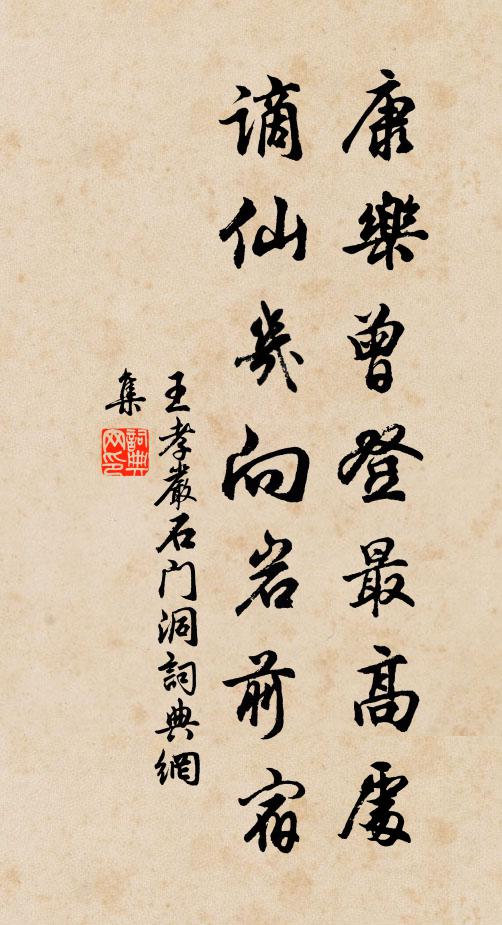 康樂曾登最高處
謫仙幾向岩前宿
王孝嚴石门洞詞典網
集
詞典网印